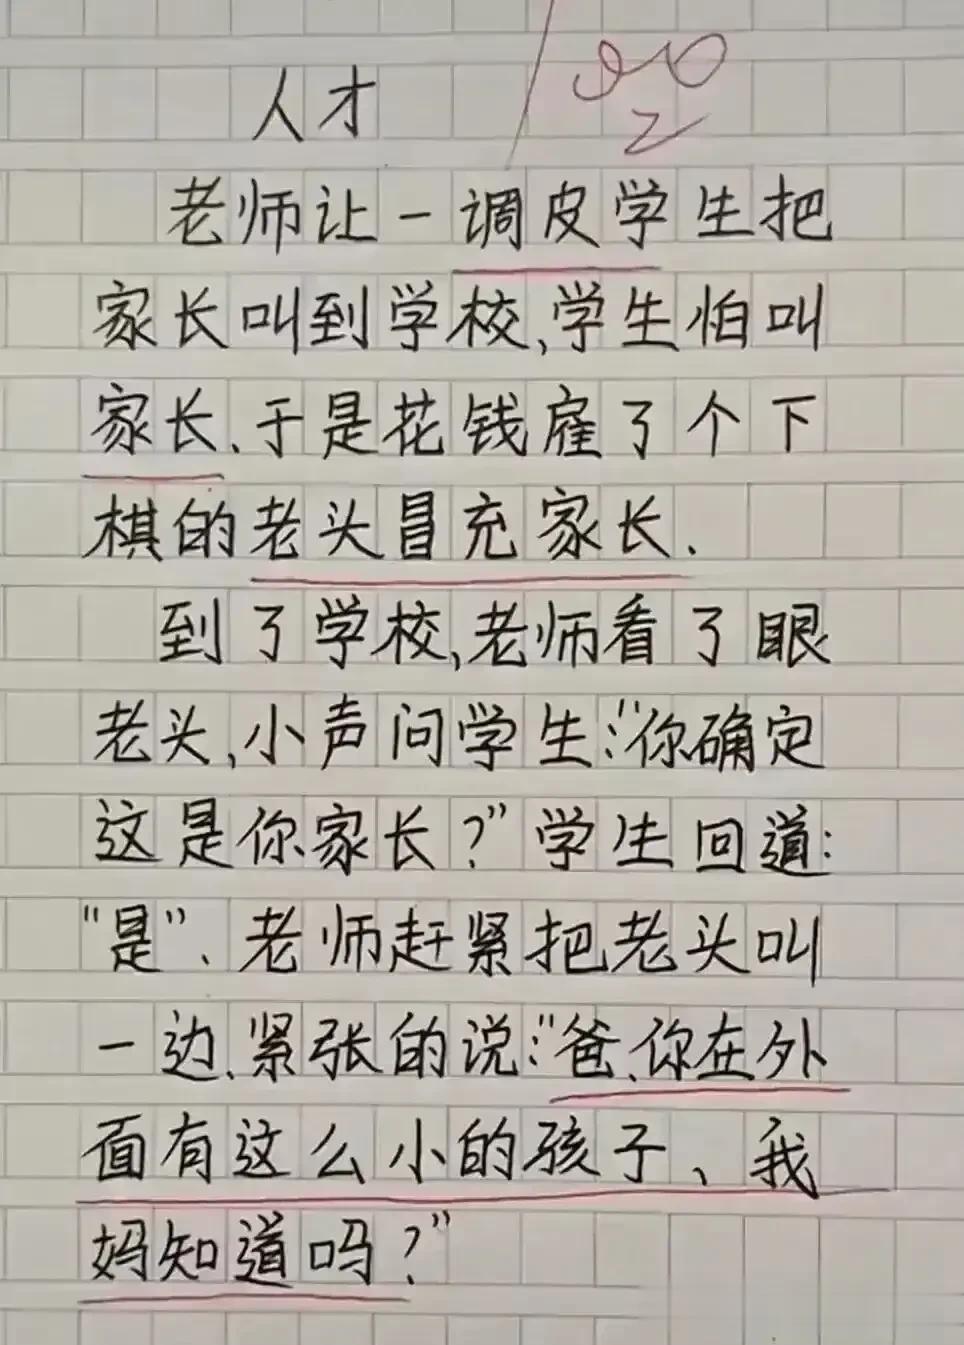 人才 100
老师让一调皮学生把
家长叫到学校,学生怕叫
家长、于是花钱雇了个下
棋的老头冒充家长.
到了学校,老师看了眼
老头,小声问学生:"你确定
这是你家长?"学生回道:
"是"、老师赶紧把老头叫
一边、紧张的说:"爸、你在外
面有这么小的孩子、我
妈知道吗?"